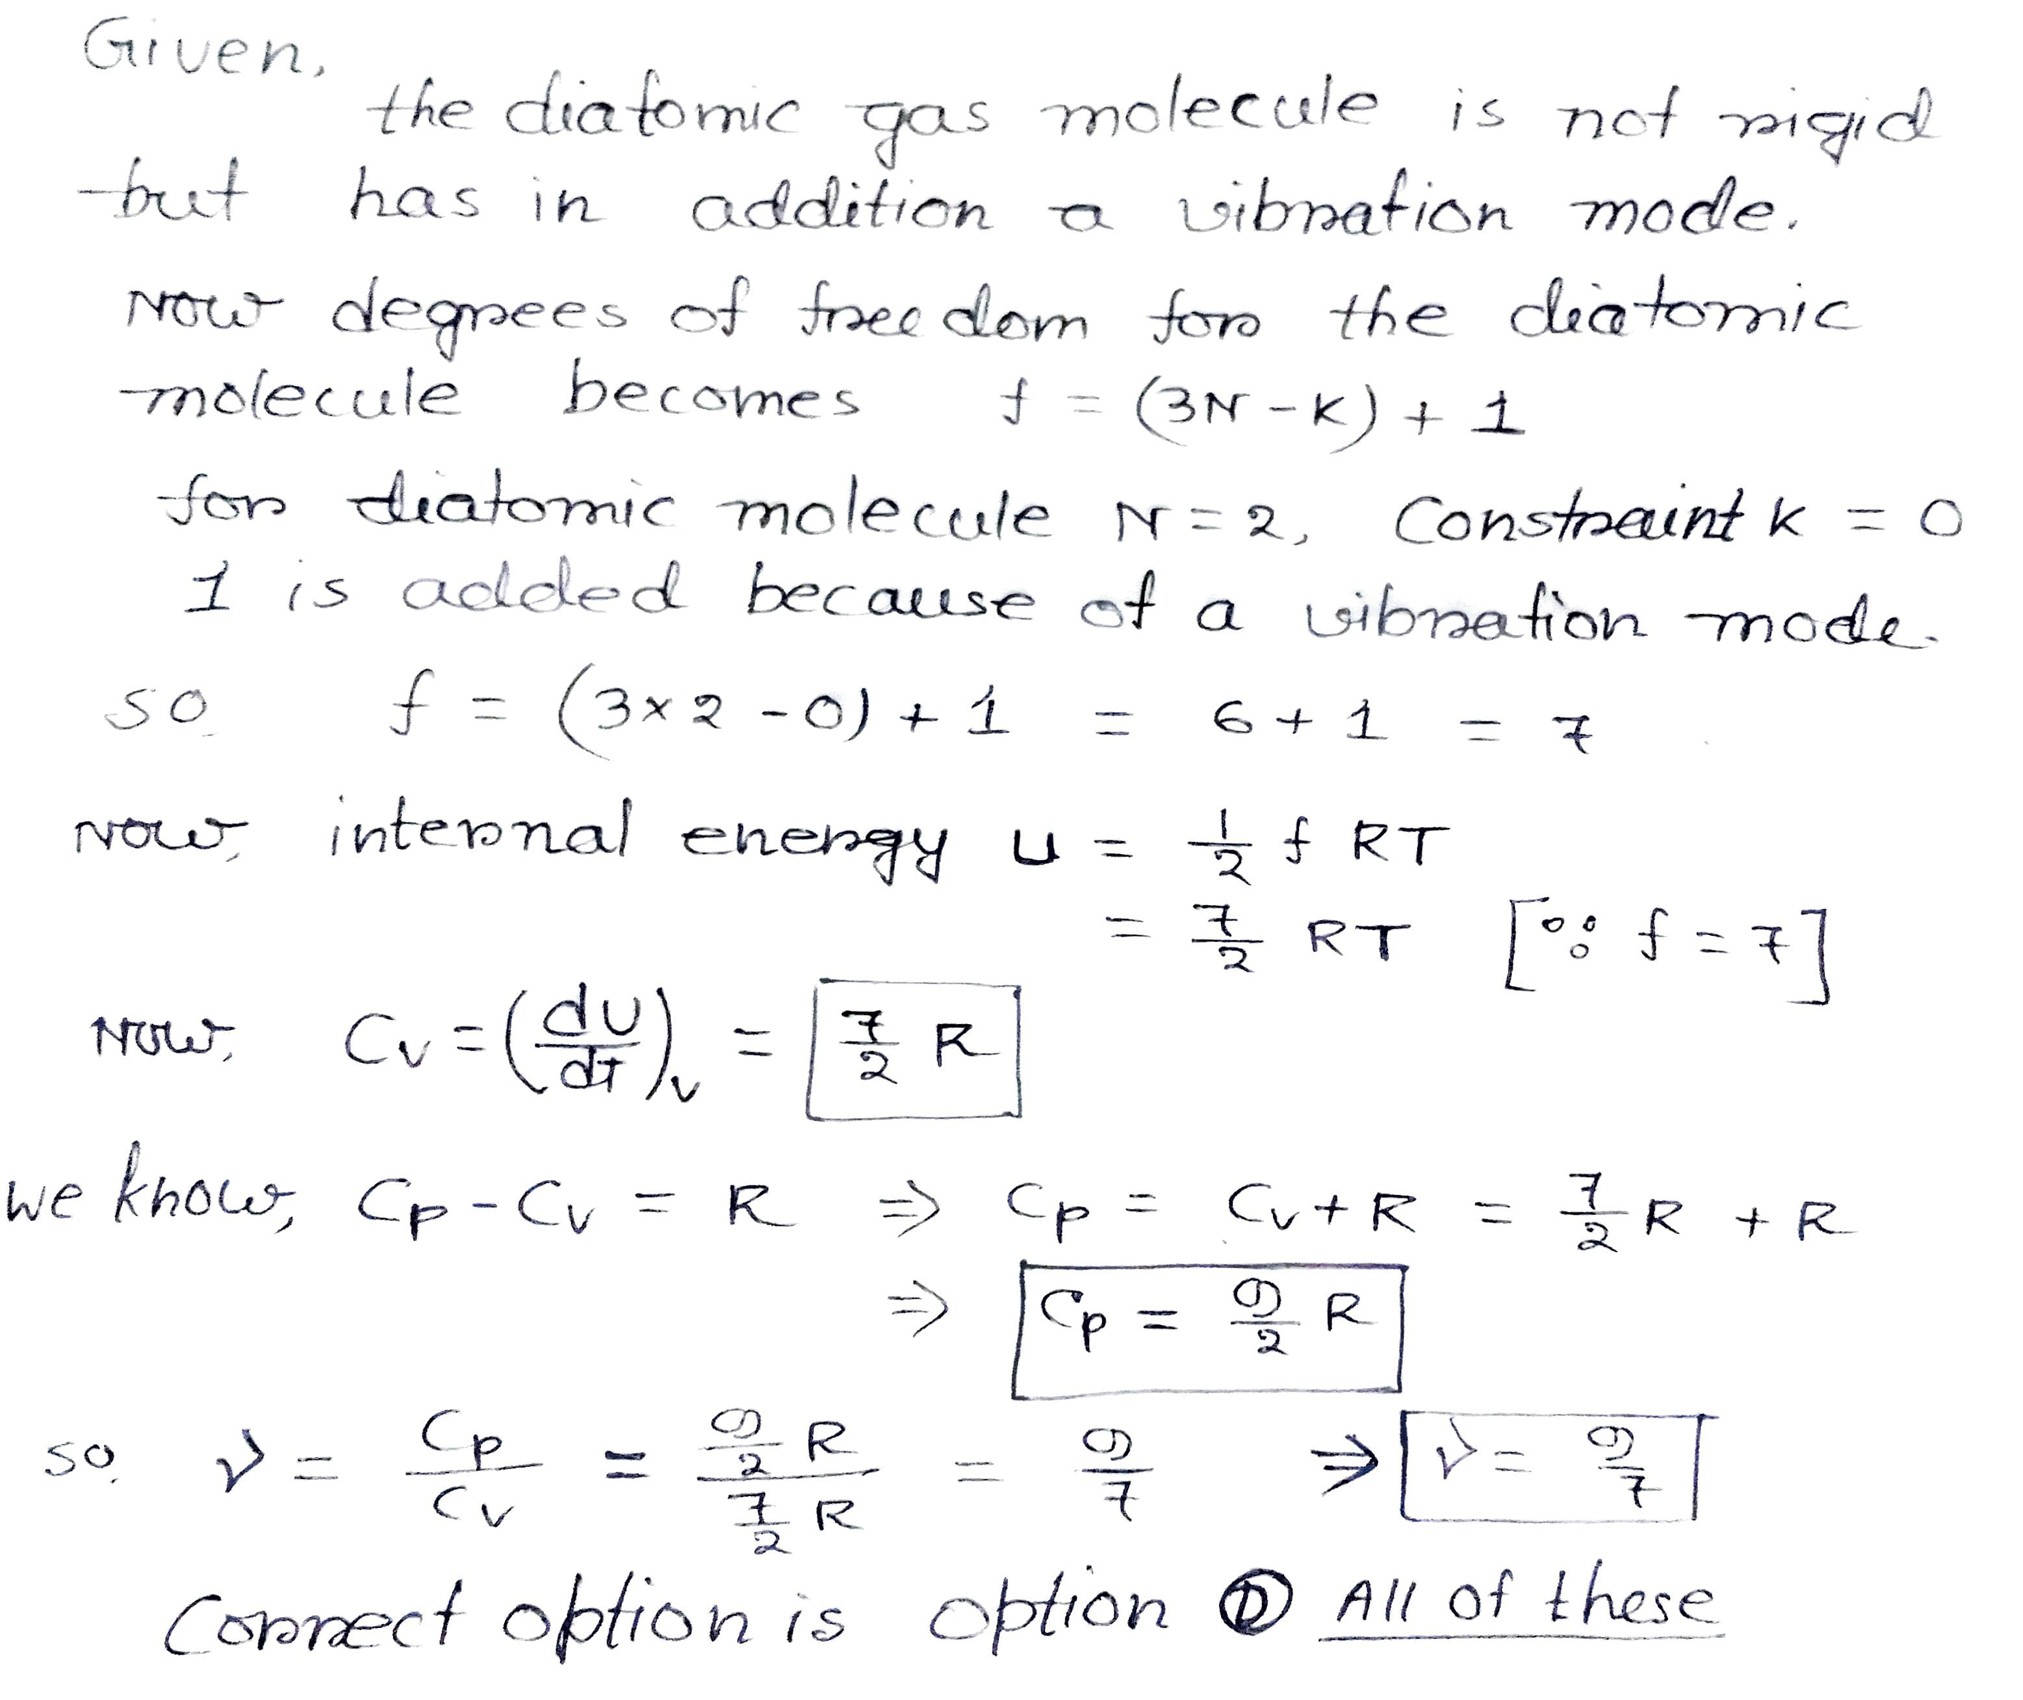 Given,
the diatomic gas molecule is not rigid
but has in addition a vibration mode.
Now degrees of freedom for the diatomic
molecule becomes f = (3N - K) + 1
for diatomic molecule N = 2, Constraint K = 0
1 is added because of a vibration mode.
so f = (3×2 - 0) + 1 = 6 + 1 = 7
Now, internal energy U = 1/2 f RT
= 7/2 RT [∵ f = 7]
Now, Cv = (dU/dT)v = 7/2 R
we know, Cp - Cv = R ⇒ Cp = Cv + R = 7/2 R + R
⇒ Cp = 9/2 R
so, γ = Cp/Cv = (9/2 R)/(7/2 R) = 9/7 ⇒ γ = 9/7
Correct option is option Ⓓ All of these